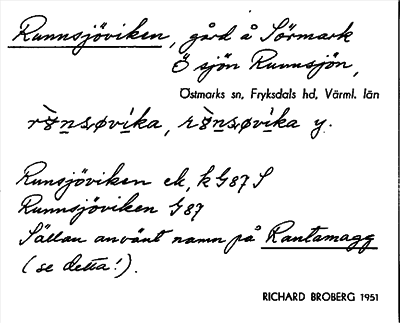 Runnsjöviken, gård å Sörmark
Ö sjön Runnsjön,
Östmarks sn, Fryksdals hd, Värml. län
y.
Runsjöviken ek, k G87 S
Runnsjöviken G87
Sällan använt namn på Rantamagg
(se detta!).
RICHARD BROBERG 1951